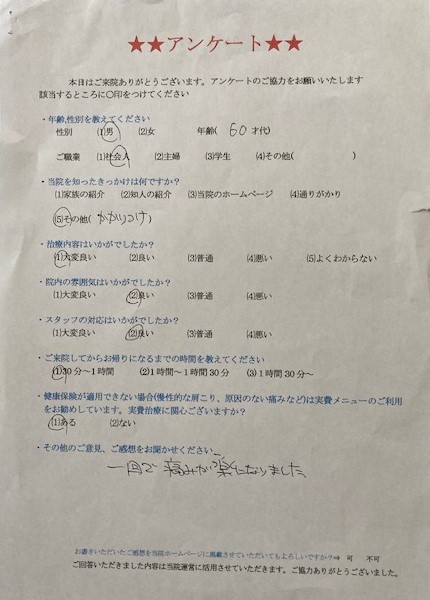 ★★アンケート★★
本日はご来院ありがとうございます。アンケートのご協力をお願いいたします
該当するところに〇印をつけてください
・年齢,性別を教えてください
性別 (1)男 (2)女 年齢( 60 才代)
ご職業 (1)社会人 (2)主婦 (3)学生 (4)その他( )
・当院を知ったきっかけは何ですか?
(1)家族の紹介 (2)知人の紹介 (3)当院のホームページ (4)通りがかり
(5)その他( かかりつけ )
・治療内容はいかがでしたか?
(1)大変良い (2)良い (3)普通 (4)悪い (5)よくわからない
・院内の雰囲気はいかがでしたか?
(1)大変良い (2)良い (3)普通 (4)悪い
・スタッフの対応はいかがでしたか?
(1)大変良い (2)良い (3)普通 (4)悪い
・ご来院してからお帰りになるまでの時間を教えてください
(1)30分〜1時間 (2)1時間〜1時間30分 (3)1時間30分〜
・健康保険が適用できない場合(慢性的な肩こり、原因のない痛みなど)は実費メニューのご利用
をお勧めしています。実費治療に関心ございますか?
(1)ある (2)ない
・その他のご意見、ご感想をお聞かせください
一回で痛みが楽になりました
お書きいただいたご感想を当院ホームページに掲載させていただいてもよろしいですか?⇒ 可 不可
ご回答いただきました内容は当院運営に活用させていただきます。ご協力ありがとうございました。